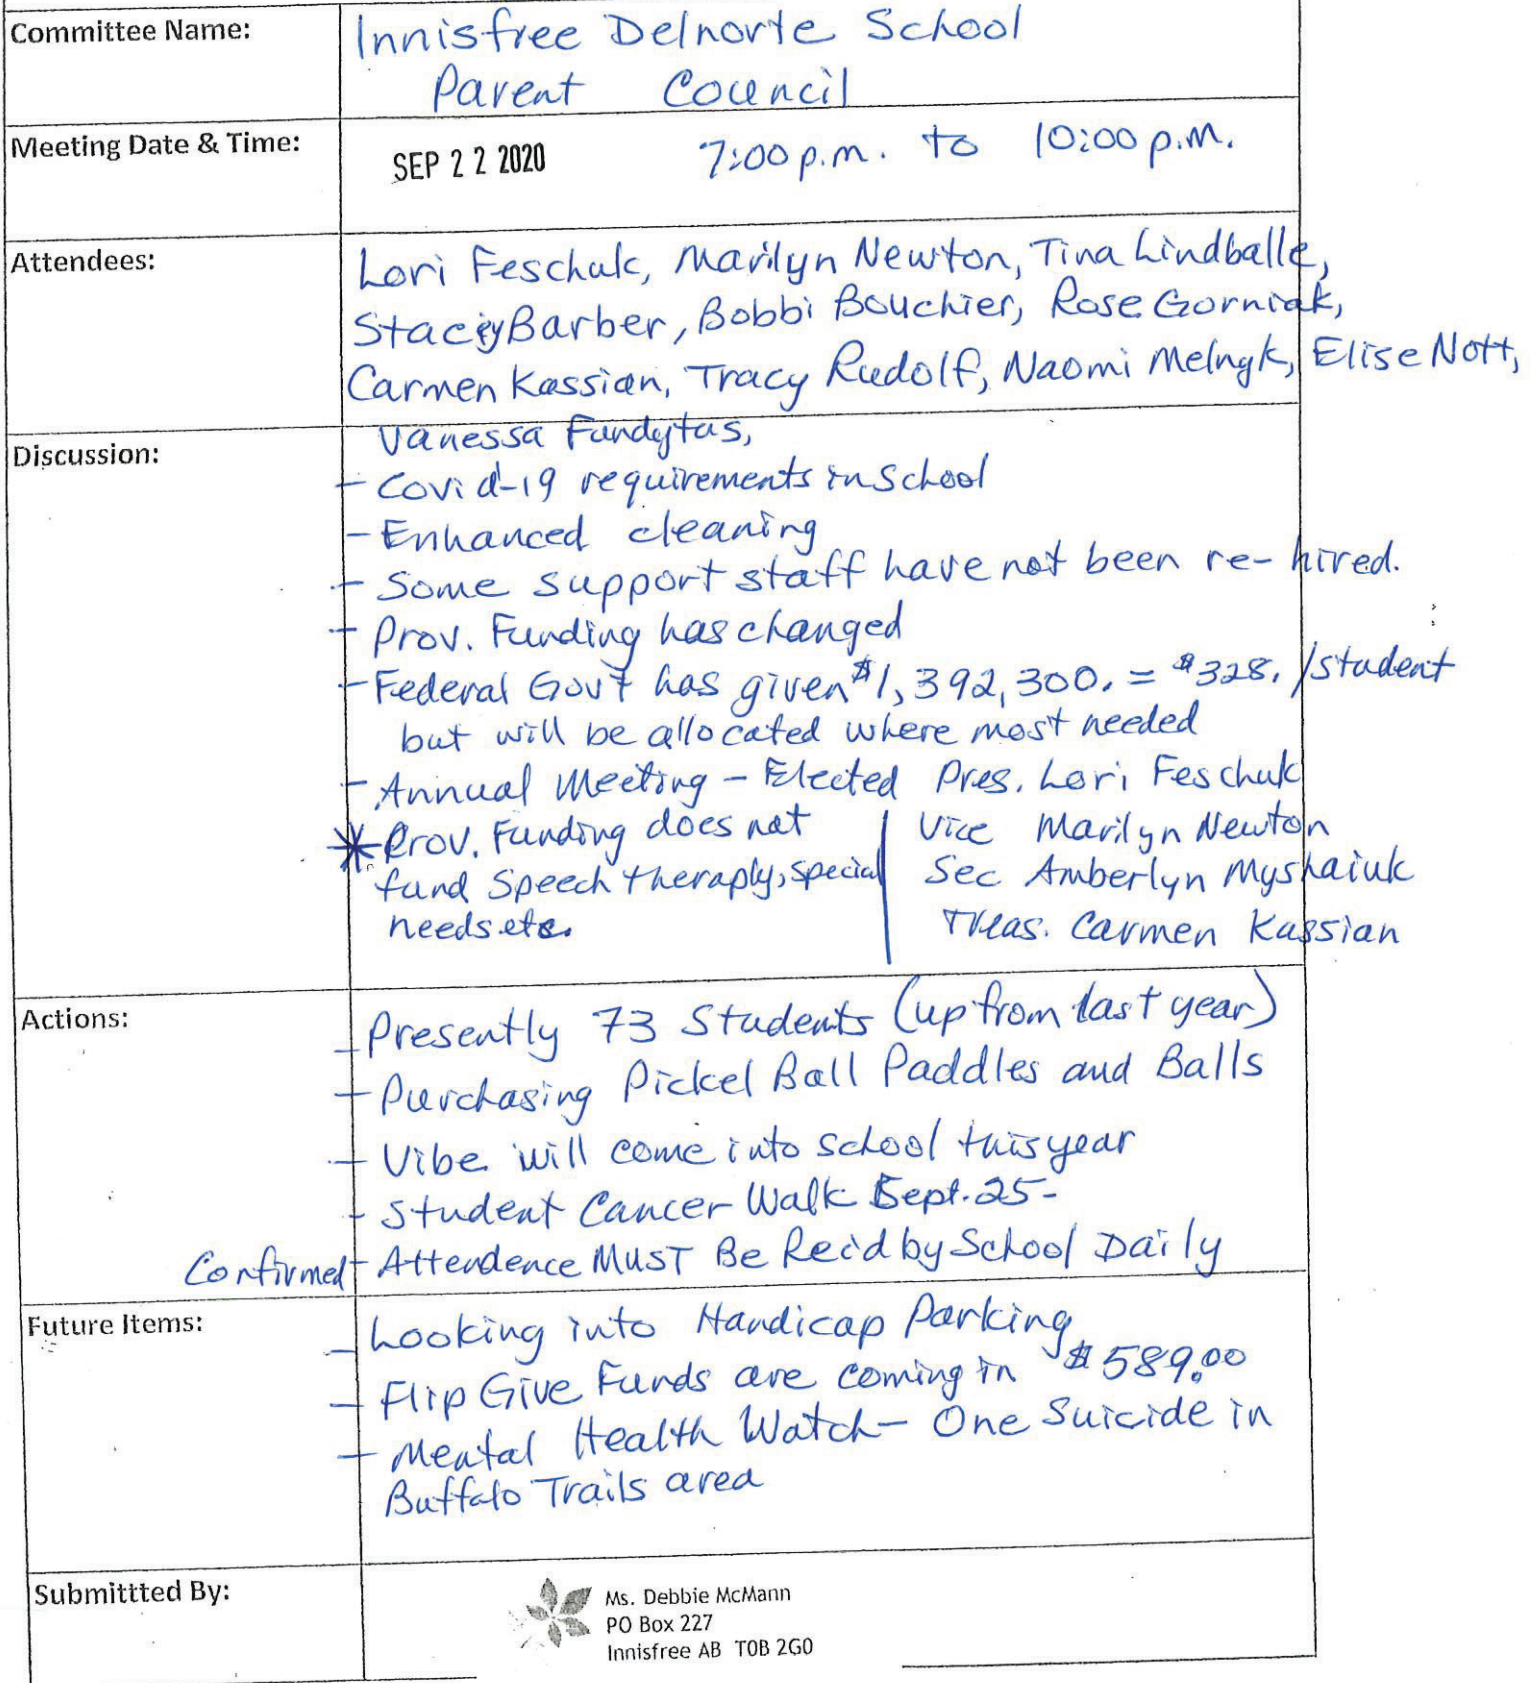 Committee Name:
Innisfree Delnorte School
Parent Council
Meeting Date & Time:
SEP 22 2020 7:00 p.m. to 10:00 p.m.
Attendees:
Lori Feschuk, Marilyn Newton, Tina Lindballe,
Stacey Barber, Bobbi Bouchier, Rose Gorniak,
Carmen Kassian, Tracy Rudolf, Naomi Melnyk, Elise Nott,
Vanessa Fundytus,
Discussion:
- Covid-19 requirements in School
- Enhanced cleaning
- Some support staff have not been re-hired.
- Prov. Funding has changed
- Federal Gov't has given $1,392,300. = $328. /student
but will be allocated where most needed
- Annual Meeting - Elected Pres. Lori Feschuk
Vice Marilyn Newton
Sec Amberlyn Myshaiuk
Treas. Carmen Kassian
* Prov. Funding does not
fund Speech theraply, special
needs etc.
Actions:
- Presently 73 Students (up from last year)
- Purchasing Pickel Ball Paddles and Balls
- Vibe will come into school this year
- Student Cancer Walk Sept. 25-
Confirmed - Attendence MUST Be Rec'd by School Daily
Future Items:
- Looking into Handicap Parking
- Flip Give Funds are coming in $589.00
- Mental Health Watch - One Suicide in
Buffalo Trails area
Submittted By:
Ms. Debbie McMann
PO Box 227
Innisfree AB T0B 2G0